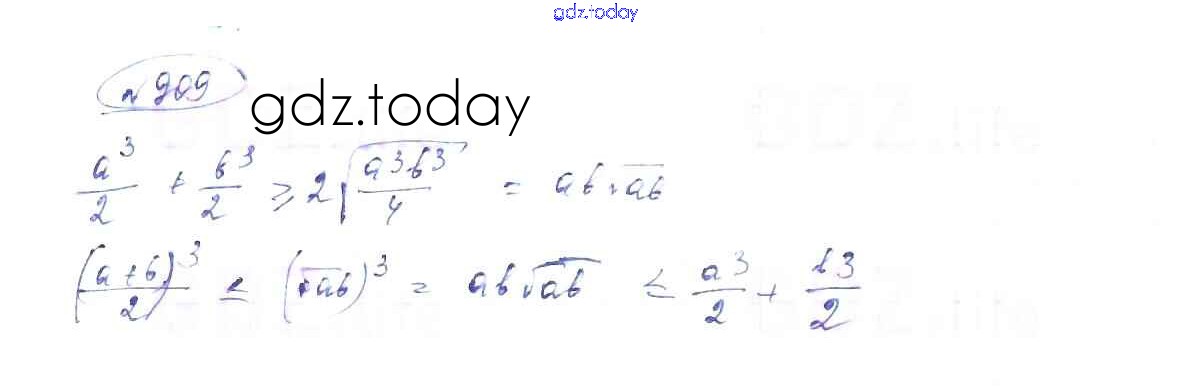 gdz.today
№ 909
gdz.today
a³/2 + b³/2 ⩾ 2√(a³b³/4) = ab√ab
((a+b)/2)³ ≤ (√ab)³ = ab√ab ≤ a³/2 + b³/2